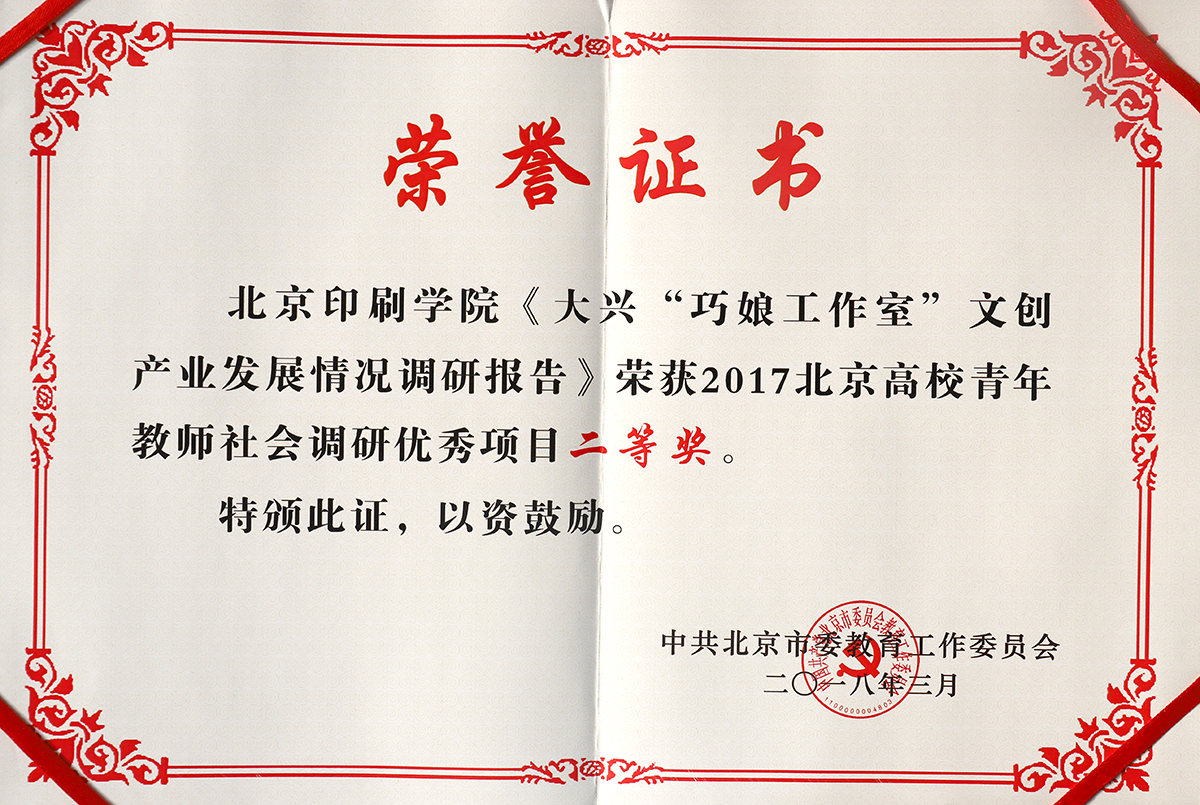 荣誉证书
北京印刷学院《大兴“巧娘工作室”文创
产业发展情况调研报告》荣获2017北京高校青年
教师社会调研优秀项目二等奖。
特颁此证，以资鼓励。
中国共产党北京市委员会教育工作委员会
中共北京市委教育工作委员会
二〇一八年三月
1100000004803